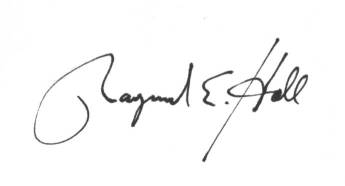 Raymond E. Hall